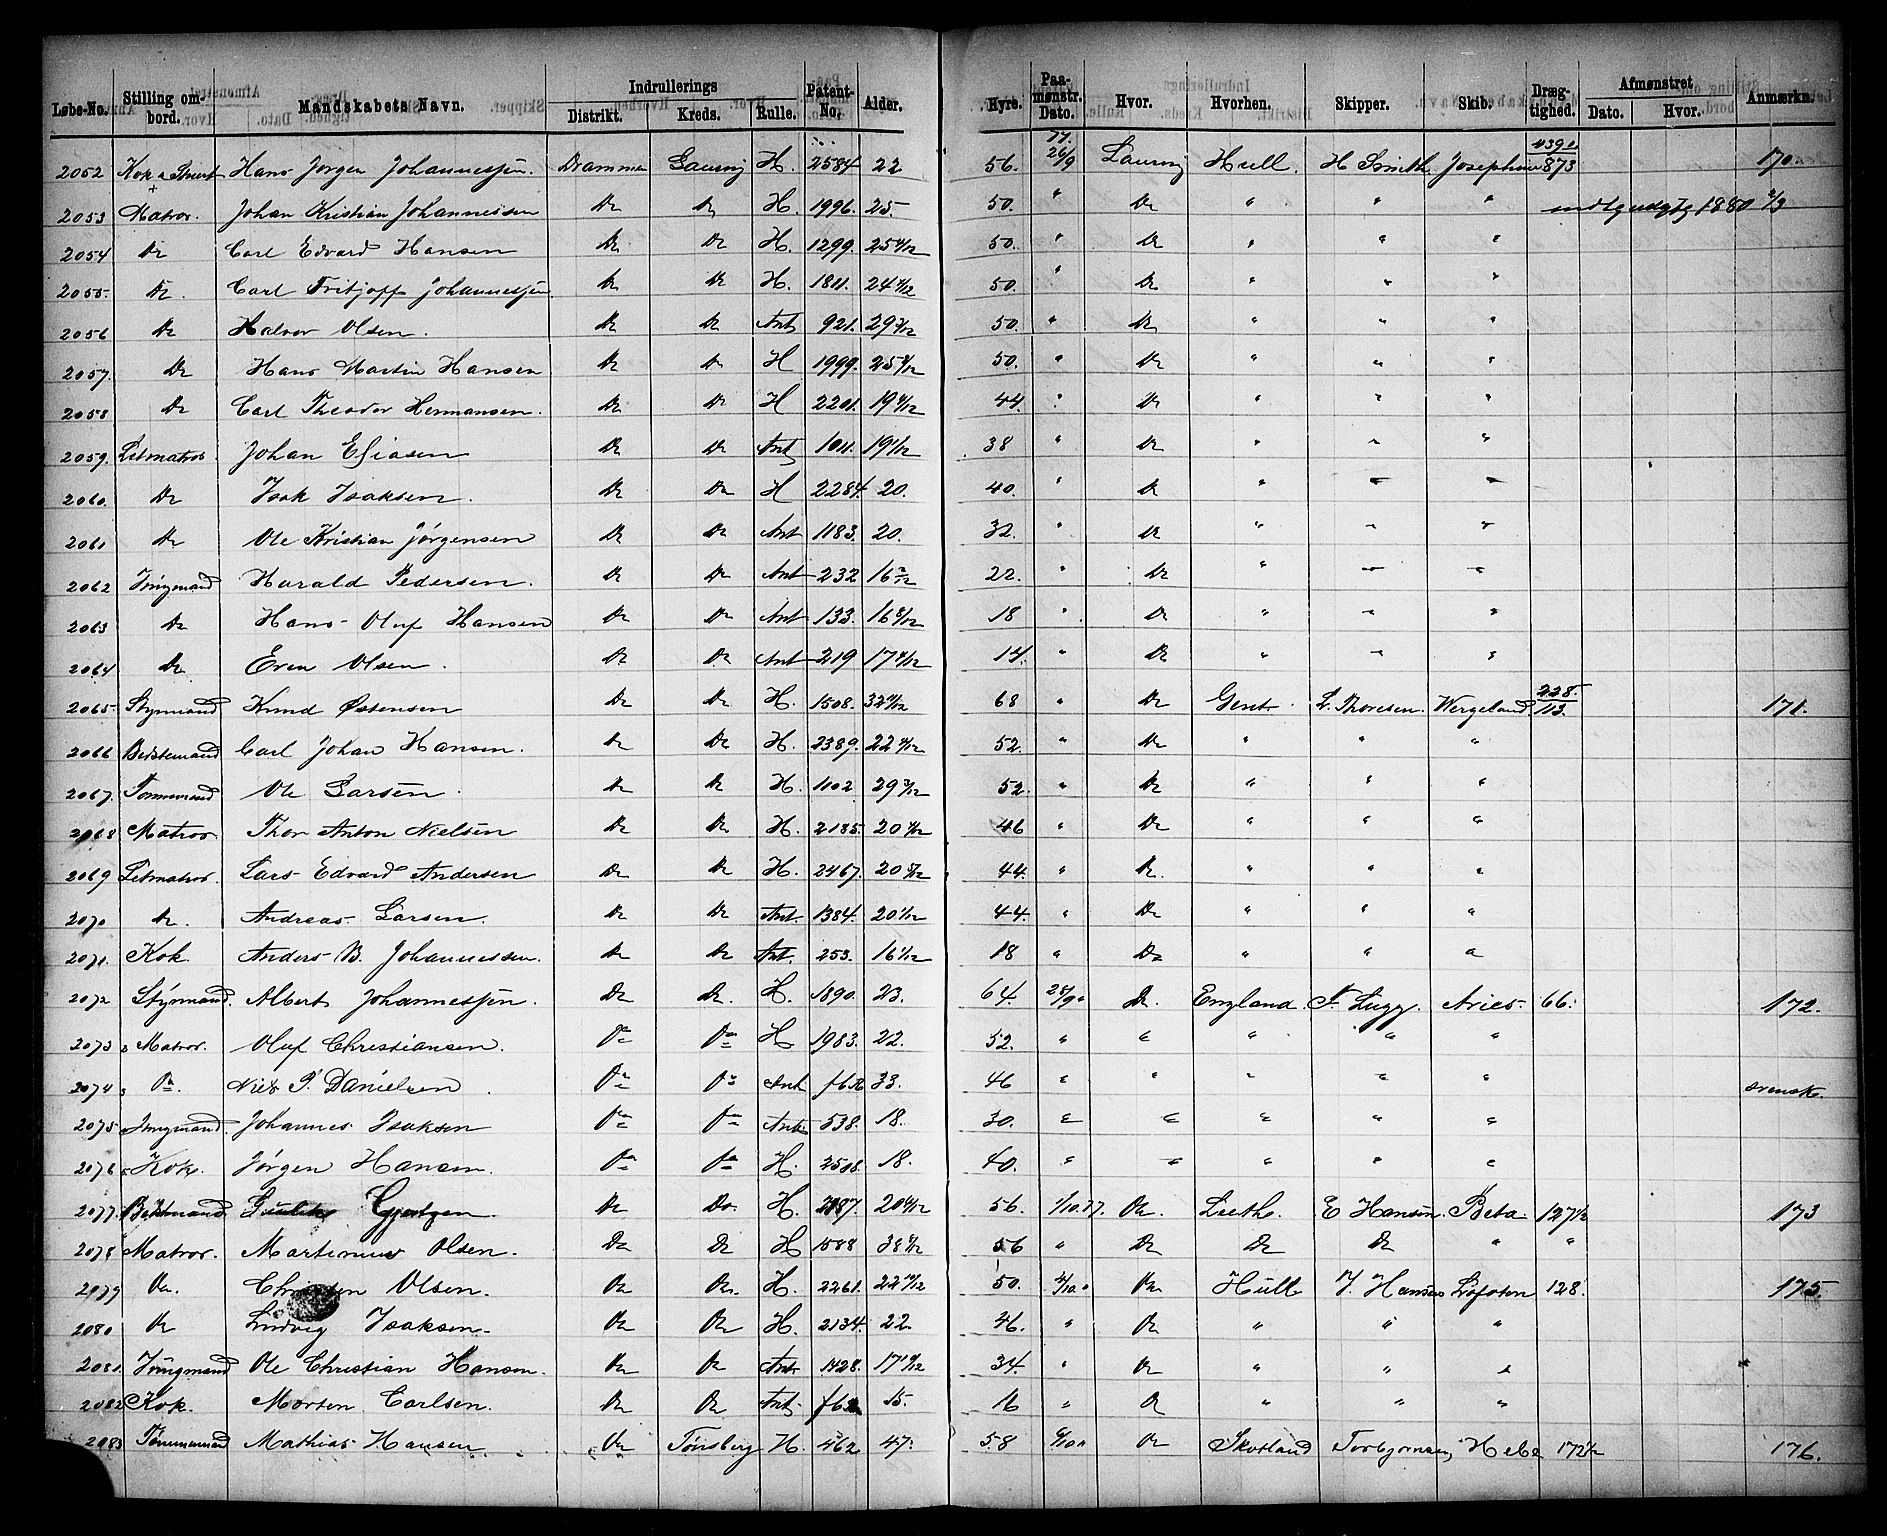 Løbe-No. Stilling ombord. Mandskabets Navn. Indrullerings Distrikt. Kreds. Rulle. Patent-No. Alder. Hyre. Paamønstr. Dato. Hvor. Hvorhen. Skipper. Skib. Drægtighed. Afmønstret Dato. Hvor. Anmærkn.
2052 Kok & Stuert Hans Jørgen Johannessen. Drammen Laurvig H. 2584 22 56. 77. 26/9 Laurvig Hull. H Smith Josephine 439 873 170.
2053 Matros. Johan Kristian Johannessen Do Do H. 1996. 25. 50. " Do " " " 1880 2/3
2054 Do Carl Edvard Hansen Do Do H. 1299. 25 50. " Do " " "
2055. Do. Carl Fritjoff Johannessen Do Do H. 1811. 24 50. " Do " " "
2056 Do Halvor Olsen. Do Do Ant 921. 29 50. " Do " " "
2057. Do Hans Martin Hansen Do Do H 1999. 25 50. " Do " " "
2058 Do Carl Theodor Hermansen. Do Do H 2201. 19 44. " Do " " "
2059. Letmatros. Johan Eliasen Do Do Ant 1011. 19 38 " Do " " "
2060. Do Isak Isaksen. Do Do H 2284. 20. 40. " Do " " "
2061 Do Ole Kristian Jørgensen Do Do Ant 1183. 20. 32. " Do " " "
2062 Jungmand Harald Pedersen. Do Do Ant 232 16 22. " Do " " "
2063 Do Hans Oluf Hansen Do Do Ant 133. 16 8/12 18 " Do " " "
2064 Do Even Olsen. Do Do Ant 219 17 14. " Do " " "
2065. Styrmand Knud Østensen Do Do H. 1508. 32 68 " Do Gent. L. Thoresen Wergeland 228. 113. 171.
2066 Bedstemand Carl Johan Hansen. Do Do H. 2389. 22 52. " Do " " "
2067. Tømmermand Ole Larsen. Do Do H. 1102 29 52. " Do " " "
2068 Matros. Thor Anton Nielsen Do Do H. 2185. 20 46 " Do " " "
2069 Letmatros. Lars Edvard Andersen Do Do H. 2467. 20 44. " Do. " " "
2070 Do. Andreas Larsen. Do Do Ant. 1384. 20 44. " Do " " "
2071. Kok. Anders B. Johannessen. Do Do Ant. 253. 16 18 " Do " " "
2072 Styrmand. Albert Johannessen. Do Do. H. 1890. 23. 64. Do. England. F. Lugg. Aries 66. 172.
2073 Matros. Oluf Christiansen. Do Do H 1983. 22. 52. " " " " "
2074 Do. Niels P. Danielsen. Do Do Ant 33. 46 " " " " " svensk.
2075 Jungmand. Johannes Isaksen Do Do Ant 538. 18. 30. " " " " "
2076 Kok. Jørgen Hansen. Do Do H. 2508. 18. 40. " " " " "
2077. Bedstmand Gjertsen Do Do. H. 20 56. 1/10.77. Do. Leith. E Hansen. Beta 127½ 173
2078 Matros. Martinius Olsen. Do Do H 1588 38 56 " Do Do Do " "
2079 Do. Christen Olsen. Do Do. H. 2261. 22 50. Do Hull J. Hansen Lofoten 128. 175.
2080 Do Ludvig Isaksen. Do Do H. 2134. 22. 46. " Do " " "
2081. Jungmand Ole Christian Hansen. Do Do Ant 1428. 17 34. " Do " " "
2082 Kok. Morten Carlsen. Do Do Ant 15. 16 " Do " " "
2083 Tømmermand Mathias Hansen Do Tønsberg H. 462 47. 58 Do Skotland Torbjørnsen Hebe 172½ 176.